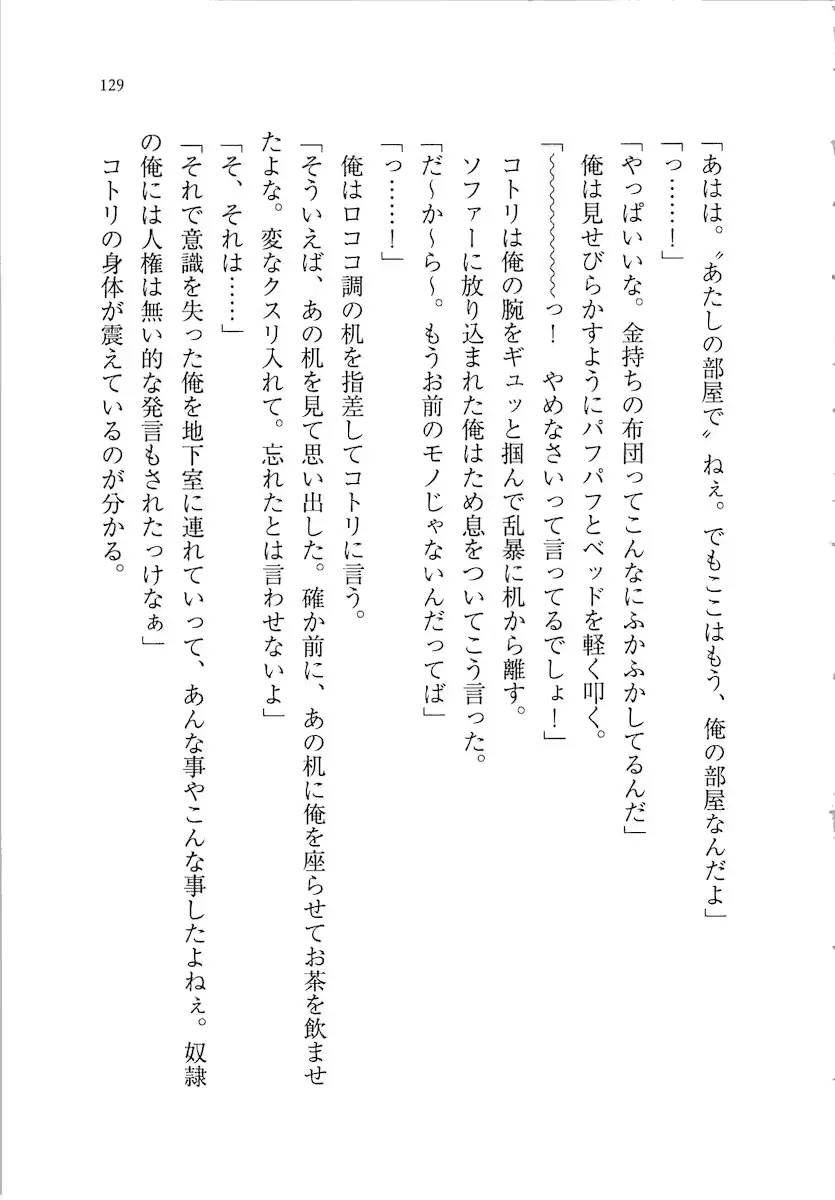 129
「あはは。〝あたしの部屋で〟ねぇ。でもここはもう、俺の部屋なんだよ」
「っ……！」
「やっぱいいな。金持ちの布団ってこんなにふかふかしてるんだ」
俺は見せびらかすようにパフパフとベッドを軽く叩く。
「～～～～～～～っ！　やめなさいって言ってるでしょ！」
コトリは俺の腕をギュッと掴んで乱暴に机から離す。
ソファーに放り込まれた俺はため息をついてこう言った。
「だ～か～ら～。もうお前のモノじゃないんだってば」
「っ……！」
俺はロココ調の机を指差してコトリに言う。
「そういえば、あの机を見て思い出した。確か前に、あの机に俺を座らせてお茶を飲ませ
たよな。変なクスリ入れて。忘れたとは言わせないよ」
「そ、それは……」
「それで意識を失った俺を地下室に連れていって、あんな事やこんな事したよねぇ。奴隷
の俺には人権は無い的な発言もされたっけなぁ」
コトリの身体が震えているのが分かる。